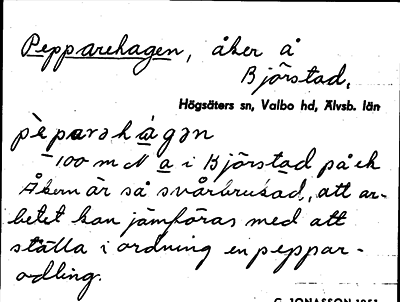 Pepparehagen, åker å
Björstad,
Högsäters sn, Valbo hd, Älvsb. län
pèparəhágən
100 m N a i Björstad på ek
Åkern är så svårbrukad, att ar-
betet kan jämföras med att
ställa i ordning en peppar-
odling.
G. JONASSON 1951